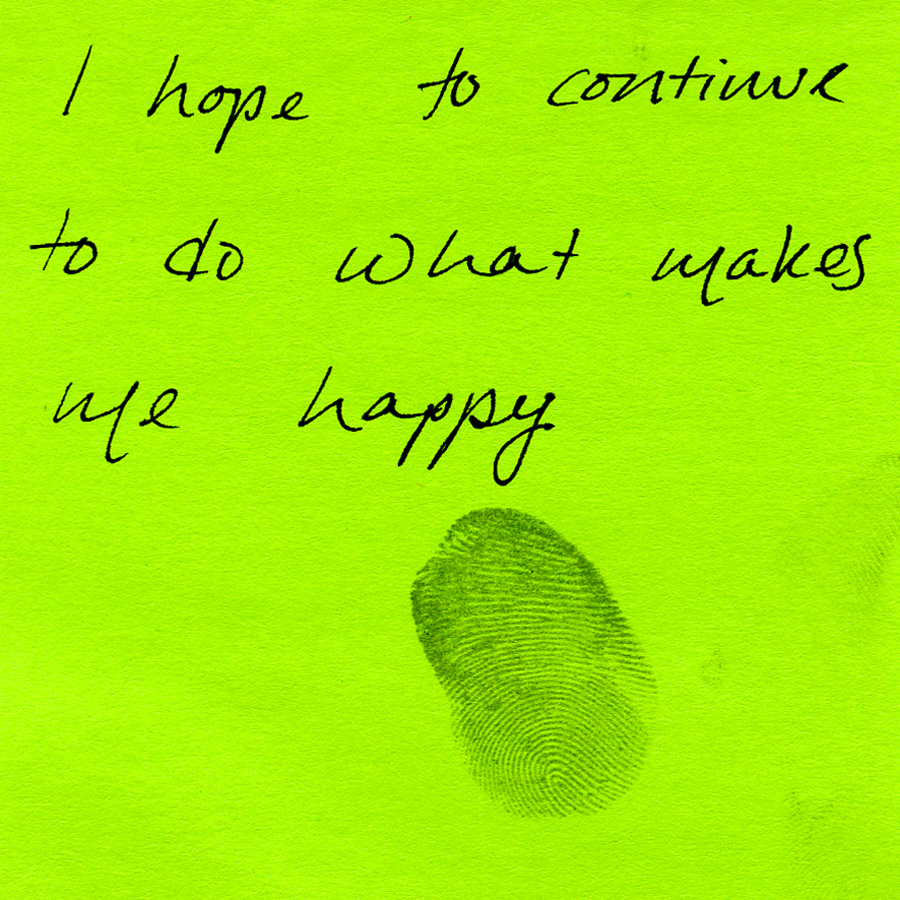 I hope to continue
to do what makes
me happy